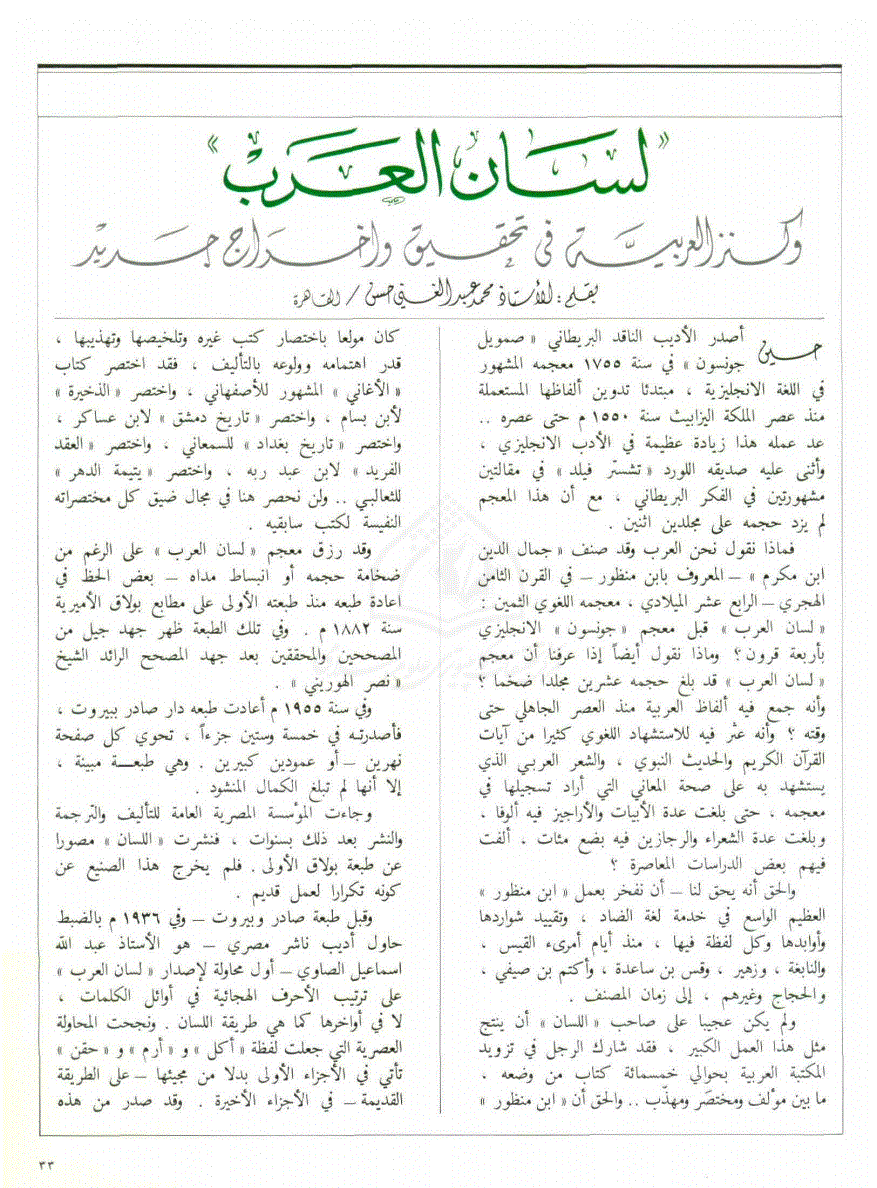 « لسان العرب »
وكنز العربية في تحقيق وإخراج جديد
بقلم : الأستاذ محمد عبد الغني حسن / القاهرة
حين أصدر الأديب الناقد البريطاني « صمويل
جونسون » في سنة ١٧٥٥ معجمه المشهور
في اللغة الانجليزية ، مبتدئا تدوين ألفاظها المستعملة
منذ عصر الملكة اليزابيث سنة ١٥٥٠ م حتى عصره ..
عد عمله هذا زيادة عظيمة في الأدب الانجليزي ،
وأثنى عليه صديقه اللورد « تشستر فيلد » في مقالتين
مشهورتين في الفكر البريطاني ، مع أن هذا المعجم
لم يزد حجمه على مجلدين اثنين .
فماذا نقول نحن العرب وقد صنف « جمال الدين
ابن مكرم » – المعروف بابن منظور – في القرن الثامن
الهجري – الرابع عشر الميلادي ، معجمه اللغوي الثمين :
« لسان العرب » قبل معجم « جونسون » الانجليزي
بأربعة قرون ؟ وماذا نقول أيضاً إذا عرفنا أن معجم
« لسان العرب » قد بلغ حجمه عشرين مجلدا ضخما ؟
وأنه جمع فيه ألفاظ العربية منذ العصر الجاهلي حتى
وقته ؟ وأنه عثر فيه للاستشهاد اللغوي كثيرا من آيات
القرآن الكريم والحديث النبوي ، والشعر العربي الذي
يستشهد به على صحة المعاني التي أراد تسجيلها في
معجمه ، حتى بلغت عدة الأبيات والأراجيز فيه ألوفا ،
وبلغت عدة الشعراء والرجازين فيه بضع مئات ، ألفت
فيهم بعض الدراسات المعاصرة ؟
والحق أنه يحق لنا – أن نفخر بعمل « ابن منظور »
العظيم الواسع في خدمة لغة الضاد ، وتقييد شواردها
وأوابدها وكل لفظة فيها ، منذ أيام أمرىء القيس ،
والنابغة ، وزهير ، وقس بن ساعدة ، وأكتم بن صيفي ،
والحجاج وغيرهم ، إلى زمان المصنف .
ولم يكن عجيبا على صاحب « اللسان » أن ينتج
مثل هذا العمل الكبير ، فقد شارك الرجل في تزويد
المكتبة العربية بحوالي خمسمائة كتاب من وضعه ،
ما بين مؤلف ومختصَر ومهذّب .. والحق أن « ابن منظور »
كان مولعا باختصار كتب غيره وتلخيصها وتهذيبها ،
قدر اهتمامه وولوعه بالتأليف ، فقد اختصر كتاب
« الأغاني » المشهور للأصفهاني ، واختصر « الذخيرة »
لأبن بسام ، واختصر « تاريخ دمشق » لابن عساكر ،
واختصر « تاريخ بغداد » للسمعاني ، واختصر « العقد
الفريد » لابن عبد ربه ، واختصر « يتيمة الدهر »
للثعالبي .. ولن نحصر هنا في مجال ضيق كل مختصراته
النفيسة لكتب سابقيه .
وقد رزق معجم « لسان العرب » على الرغم من
ضخامة حجمه أو انبساط مداه – بعض الحظ في
اعادة طبعه منذ طبعته الأولى على مطابع بولاق الأميرية
سنة ١٨٨٢ م . وفي تلك الطبعة ظهر جهد جيل من
المصححين والمحققين بعد جهد المصحح الرائد الشيخ
« نصر الهوريني » .
وفي سنة ١٩٥٥ م أعادت طبعه دار صادر ببيروت ،
فأصدرته في خمسة وستين جزءاً ، تحوي كل صفحة
نهرين – أو عمودين كبيرين . وهي طبعة مبينة ،
إلا أنها لم تبلغ الكمال المنشود .
وجاءت المؤسسة المصرية العامة للتأليف والترجمة
والنشر بعد ذلك بسنوات ، فنشرت « اللسان » مصورا
عن طبعة بولاق الأولى . فلم يخرج هذا الصنيع عن
كونه تكرارا لعمل قديم .
وقبل طبعة صادر وبيروت – وفي ١٩٣٦ م بالضبط
حاول أديب ناشر مصري – هو الأستاذ عبد الله
اسماعيل الصاوي – أول محاولة لإصدار « لسان العرب »
على ترتيب الأحرف الهجائية في أوائل الكلمات ،
لا في أواخرها كما هي طريقة اللسان . ونجحت المحاولة
العصرية التي جعلت لفظة « أكل » و « أرم » و « حقن »
تأتي في الأجزاء الأولى بدلا من مجيئها – على الطريقة
القديمة – في الأجزاء الأخيرة . وقد صدر من هذه
٣٣